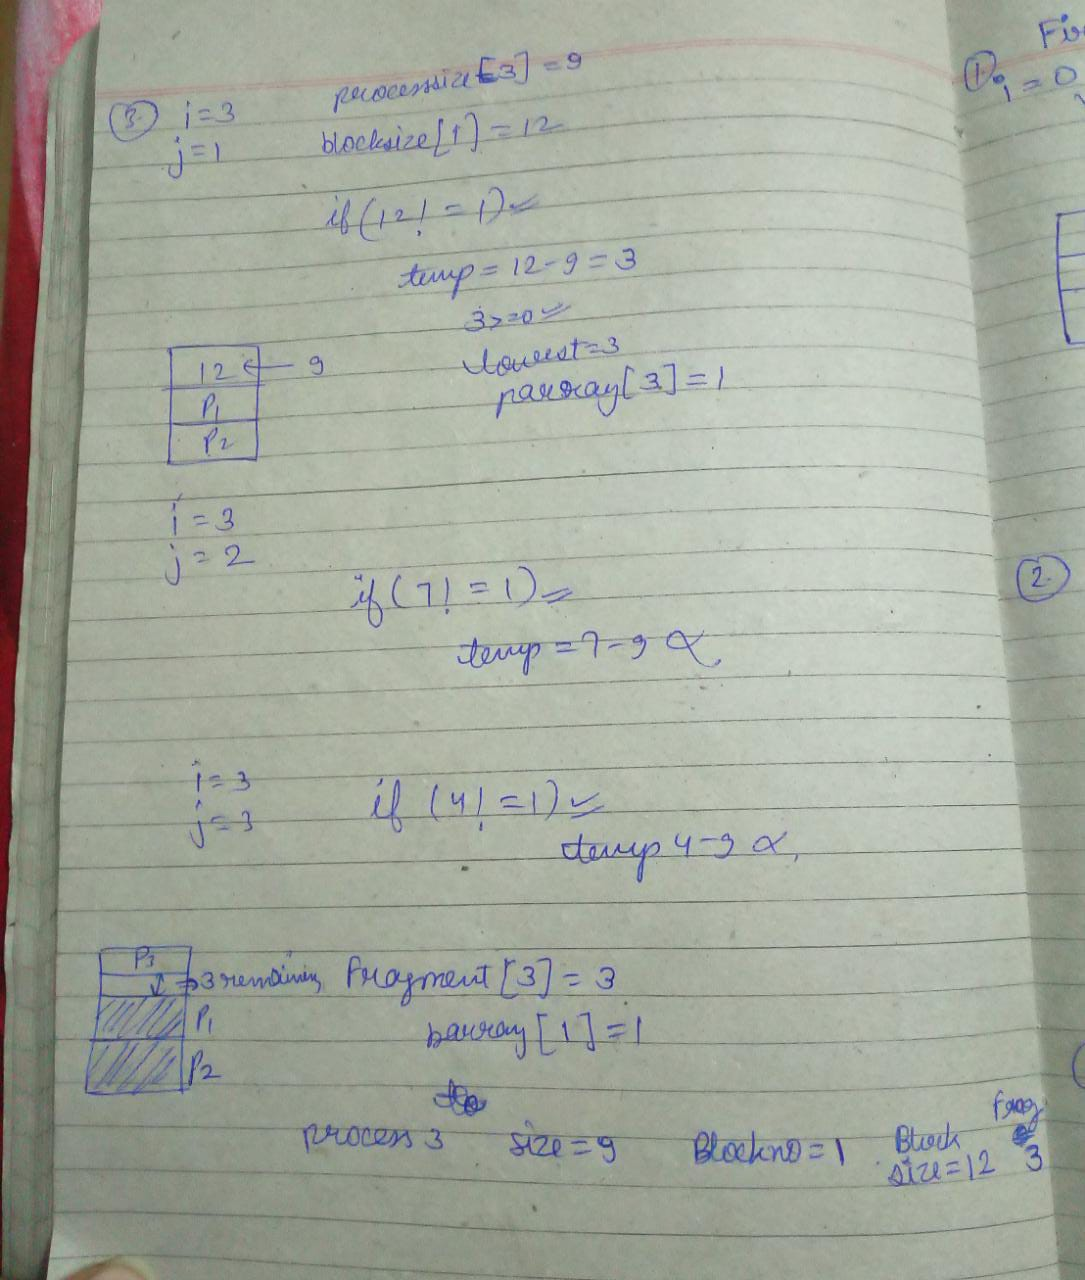 3. i=3 processsize[3] = 9
j=1 blocksize[1] = 12
if (12! = 1) ✓
temp = 12-9 = 3
3>=0 ✓
lowest=3
parray[3] = 1
12 ← 9
P1
P2
i = 3
j = 2
if (7! = 1) ✓
temp = 7-9
i = 3
j = 3
if (4! = 1) ✓
temp 4-9
P3
→ 3 remaining Fragment [3] = 3
P1
barray [1] = 1
P2
process 3 size = 9 Blockno = 1 Block size = 12 frag 3
Fir
1. i = 0
2.